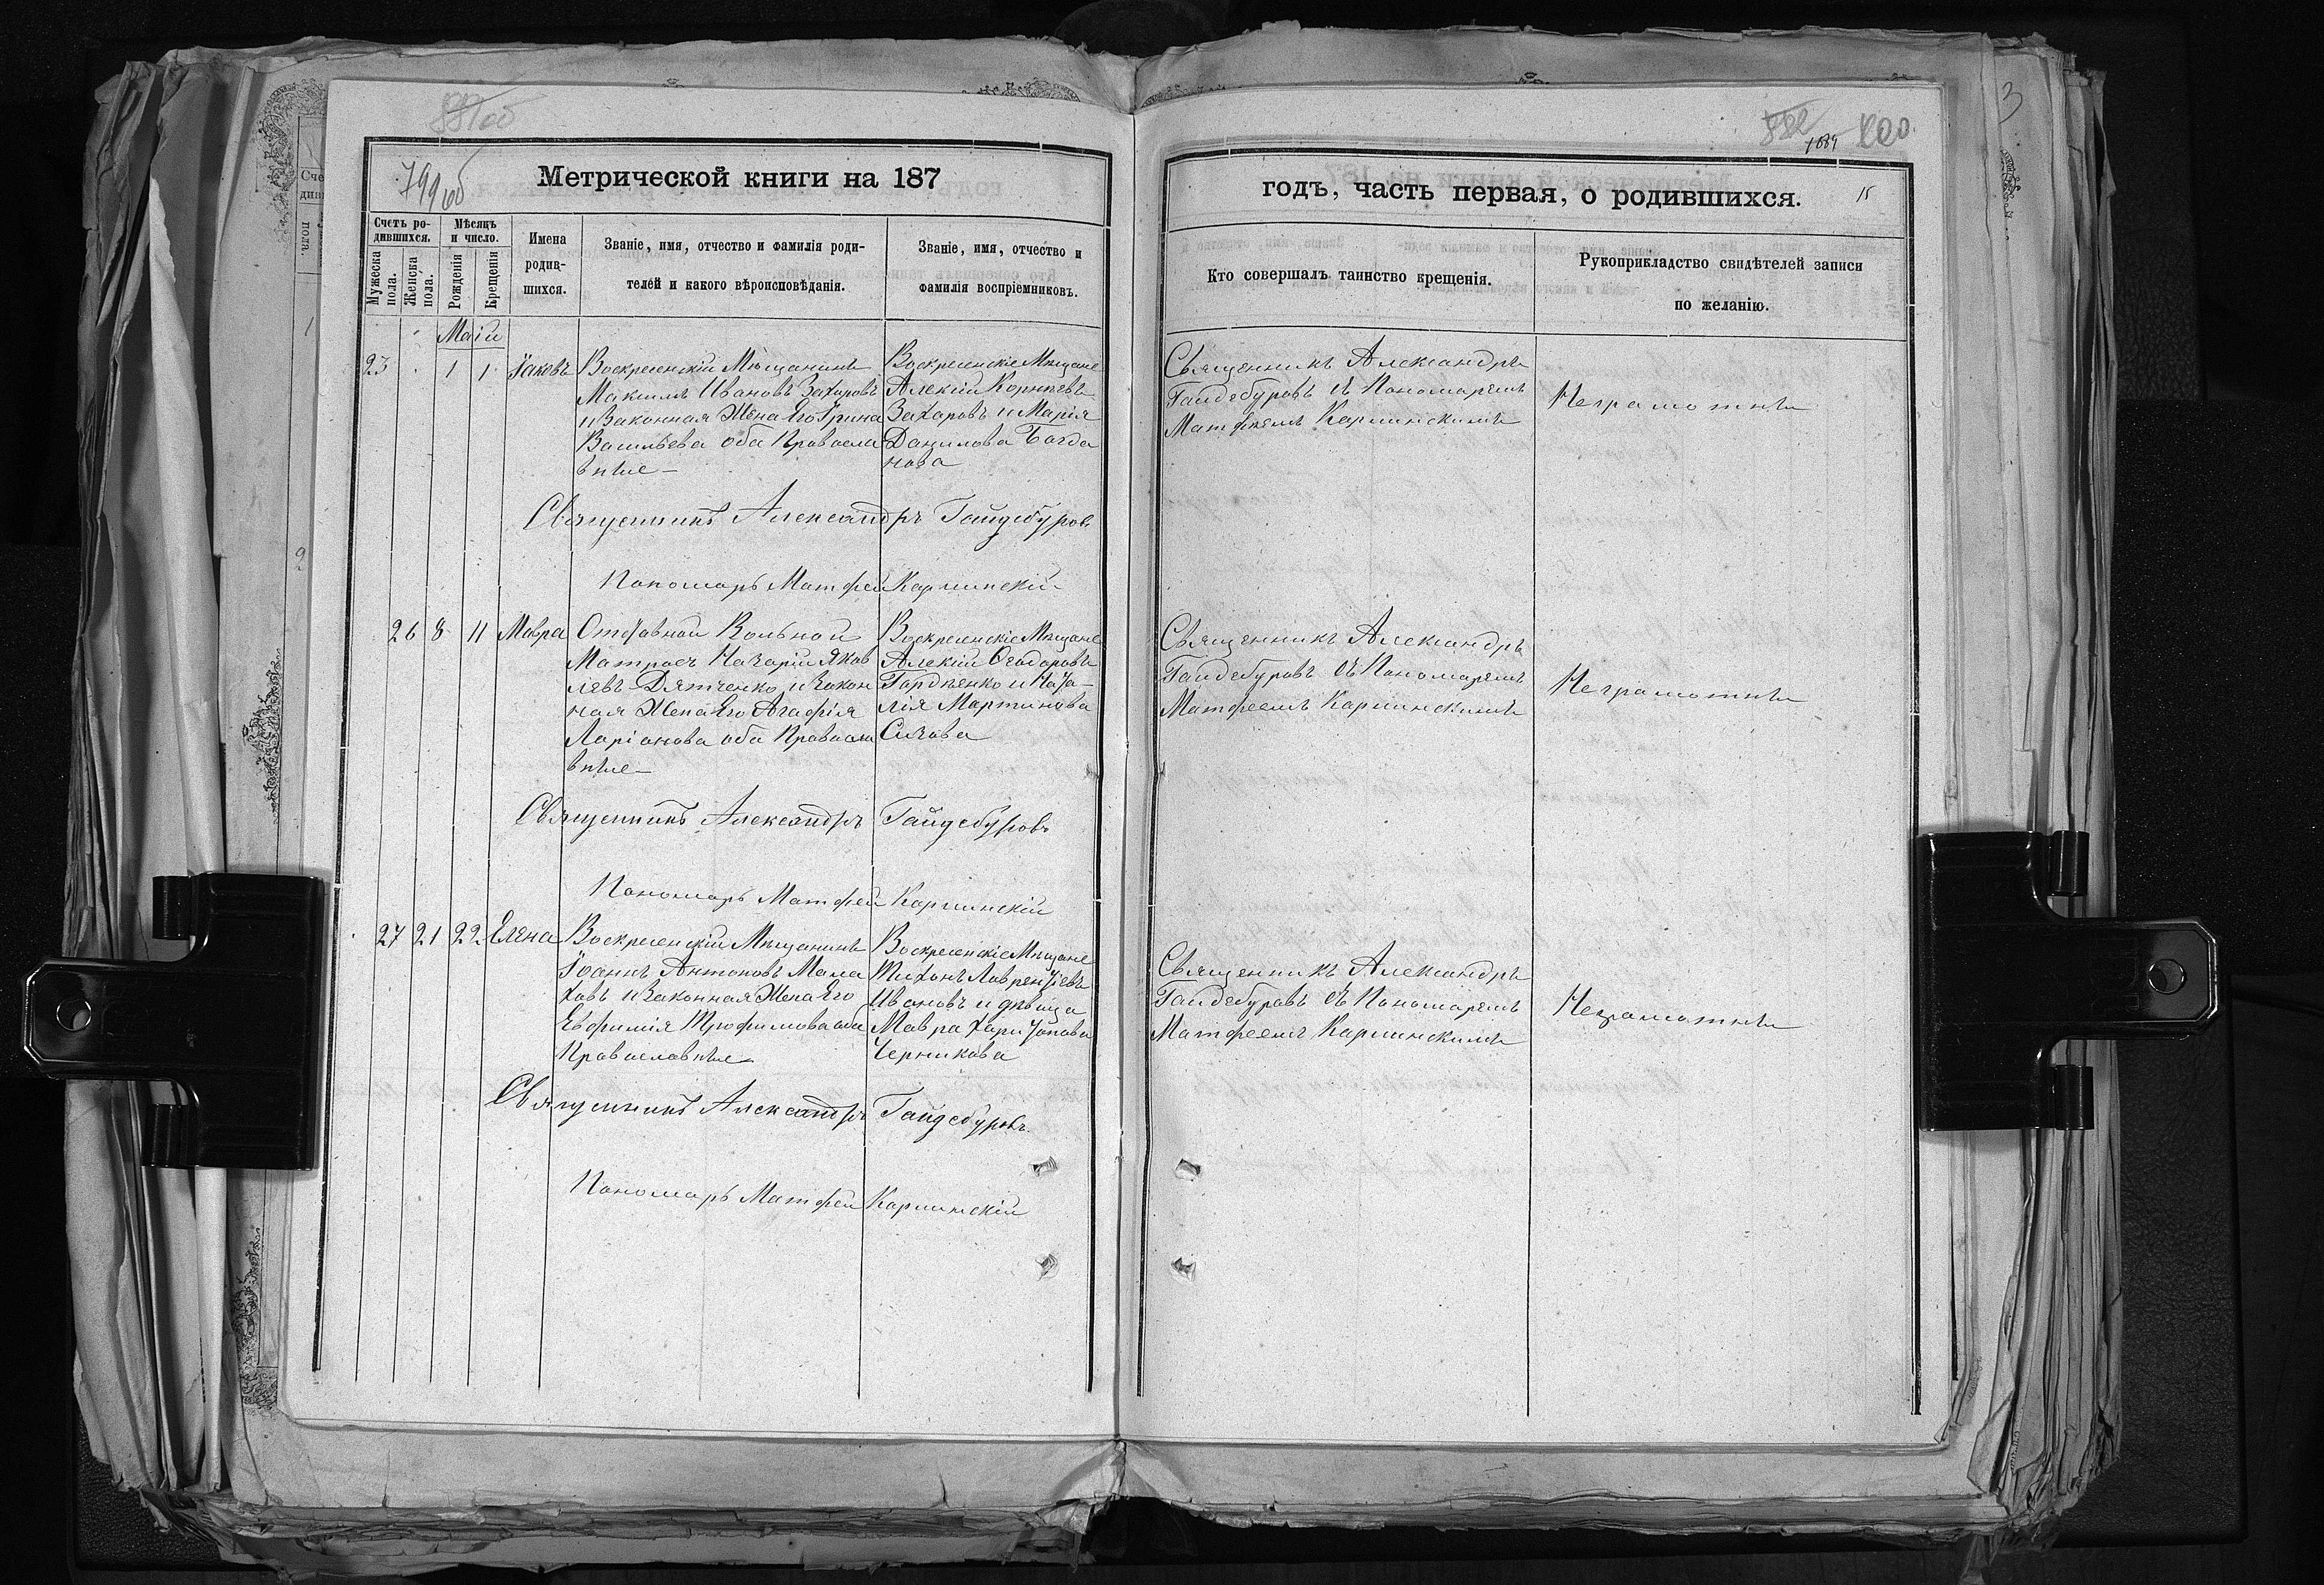 799 об
Метрической книги на 187
Счетъ ро-
дившихся.
Мѣсяцъ
и число.
Мужеска
пола.
Женска
пола.
Рожденія
Крещенія
Имена
родив-
шихся.
Званіе, имя, отчество и фамилія роди-
телей и какого вѣроисповѣданія.
Званіе, имя, отчество и
фамилія воспріемниковъ.
Маій
23 1 1 Іаковъ
Воскресенскій Мѣщанинъ
Максимъ Ивановъ Захаровъ
и Законная Жена Его Ірина
Васильева оба Правосла
вные
Воскресенскіе Мѣщане
Алексій Корнѣевъ
Захаровъ и Марія
Данилова Богда
нова
Священникъ Александръ Гайдебуровъ
Пономарь Матфей Карпинскій
26 8 11 Мавра
Отставной Вольной
Матросъ Назарій Яков
левъ Дятченко и Закон
ная Жена Его Агафія
Ларіонова оба Правосла
вные
Воскресенскіе Мѣщане
Алексій Ѳеодоровъ
Гордѣенко и Ната
лія Мартинова
Сизова
Священникъ Александръ Гайдебуровъ
Пономарь Матфей Карпинскій
27 21 22 Елена
Воскресенскій Мѣщанинъ
Іоаннъ Антоновъ Мала
ховъ и Законная Жена Его
Евфимія Трофимова оба
Православные
Воскресенскіе Мѣщане
Тихонъ Лаврентіевъ
Ивановъ и дѣвица
Мавра Харитонова
Черникова
Священникъ Александръ Гайдебуровъ
Пономарь Матфей Карпинскій
882 1084 800
годъ, часть первая, о родившихся. 15
Кто совершалъ таинство крещенія.
Рукоприкладство свидѣтелей записи
по желанію.
Священникъ Александръ
Гайдебуровъ съ Пономаремъ
Матфеемъ Карпинскимъ
Неграмотны
Священникъ Александръ
Гайдебуровъ съ Пономаремъ
Матфеемъ Карпинскимъ
Неграмотны
Священникъ Александръ
Гайдебуровъ съ Пономаремъ
Матфеемъ Карпинскимъ
Неграмотны
3